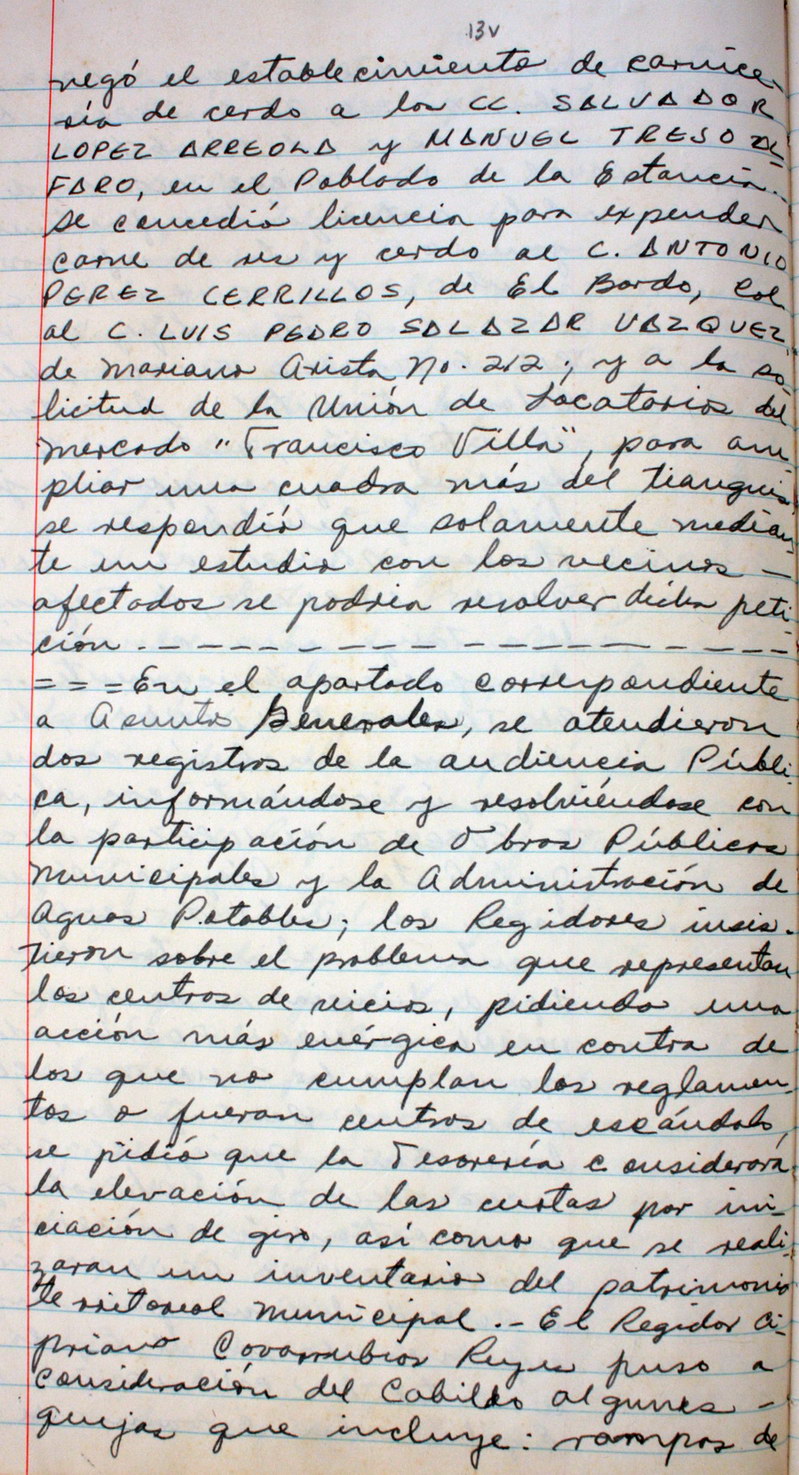 13v
negó el establecimiento de carnice-
ría de cerdo a los CC. SALVADOR
LOPEZ ARREOLA y MANUEL TRESO AL
FARO, en el Poblado de la Estancia.-
se concedió licencia para expender
carne de res y cerdo al C. ANTONIO
PEREZ CERRILLOS, de El Bordo, Col
al C. LUIS PEDRO SALAZAR VAZQUEZ,
de Mariano Arista No. 212; y a la so-
licitud de la Unión de Locatarios del
mercado "Francisco Villa", para am
pliar una cuadra más del tianguis
se respondió que solamente median
te un estudio con los vecinos -
afectados se podría resolver dicha peti-
ción. - - - - - - - - - - - - - -
= = = En el apartado correspondiente
a Asuntos Generales, se atendieron
dos registros de la audiencia Públi-
ca, informándose y resolviéndose con
la participación de Obras Públicas
Municipales y la Administración de
Aguas Potables; los Regidores insis-
tieron sobre el problema que representan
los centros de vicios, pidiendo una
acción más enérgica en contra de
los que no cumplan los reglamen-
tos o fueran centros de escándalo,
se pidió que la Tesorería considerara
la elevación de las cuotas por ini-
ciación de giro, así como que se reali-
zaran un inventario del patrimonio
territoreal municipal.- El Regidor Ci-
priano Covarrubias Reyes puso a
consideración del Cabildo algunas -
quejas que incluye: rampas de